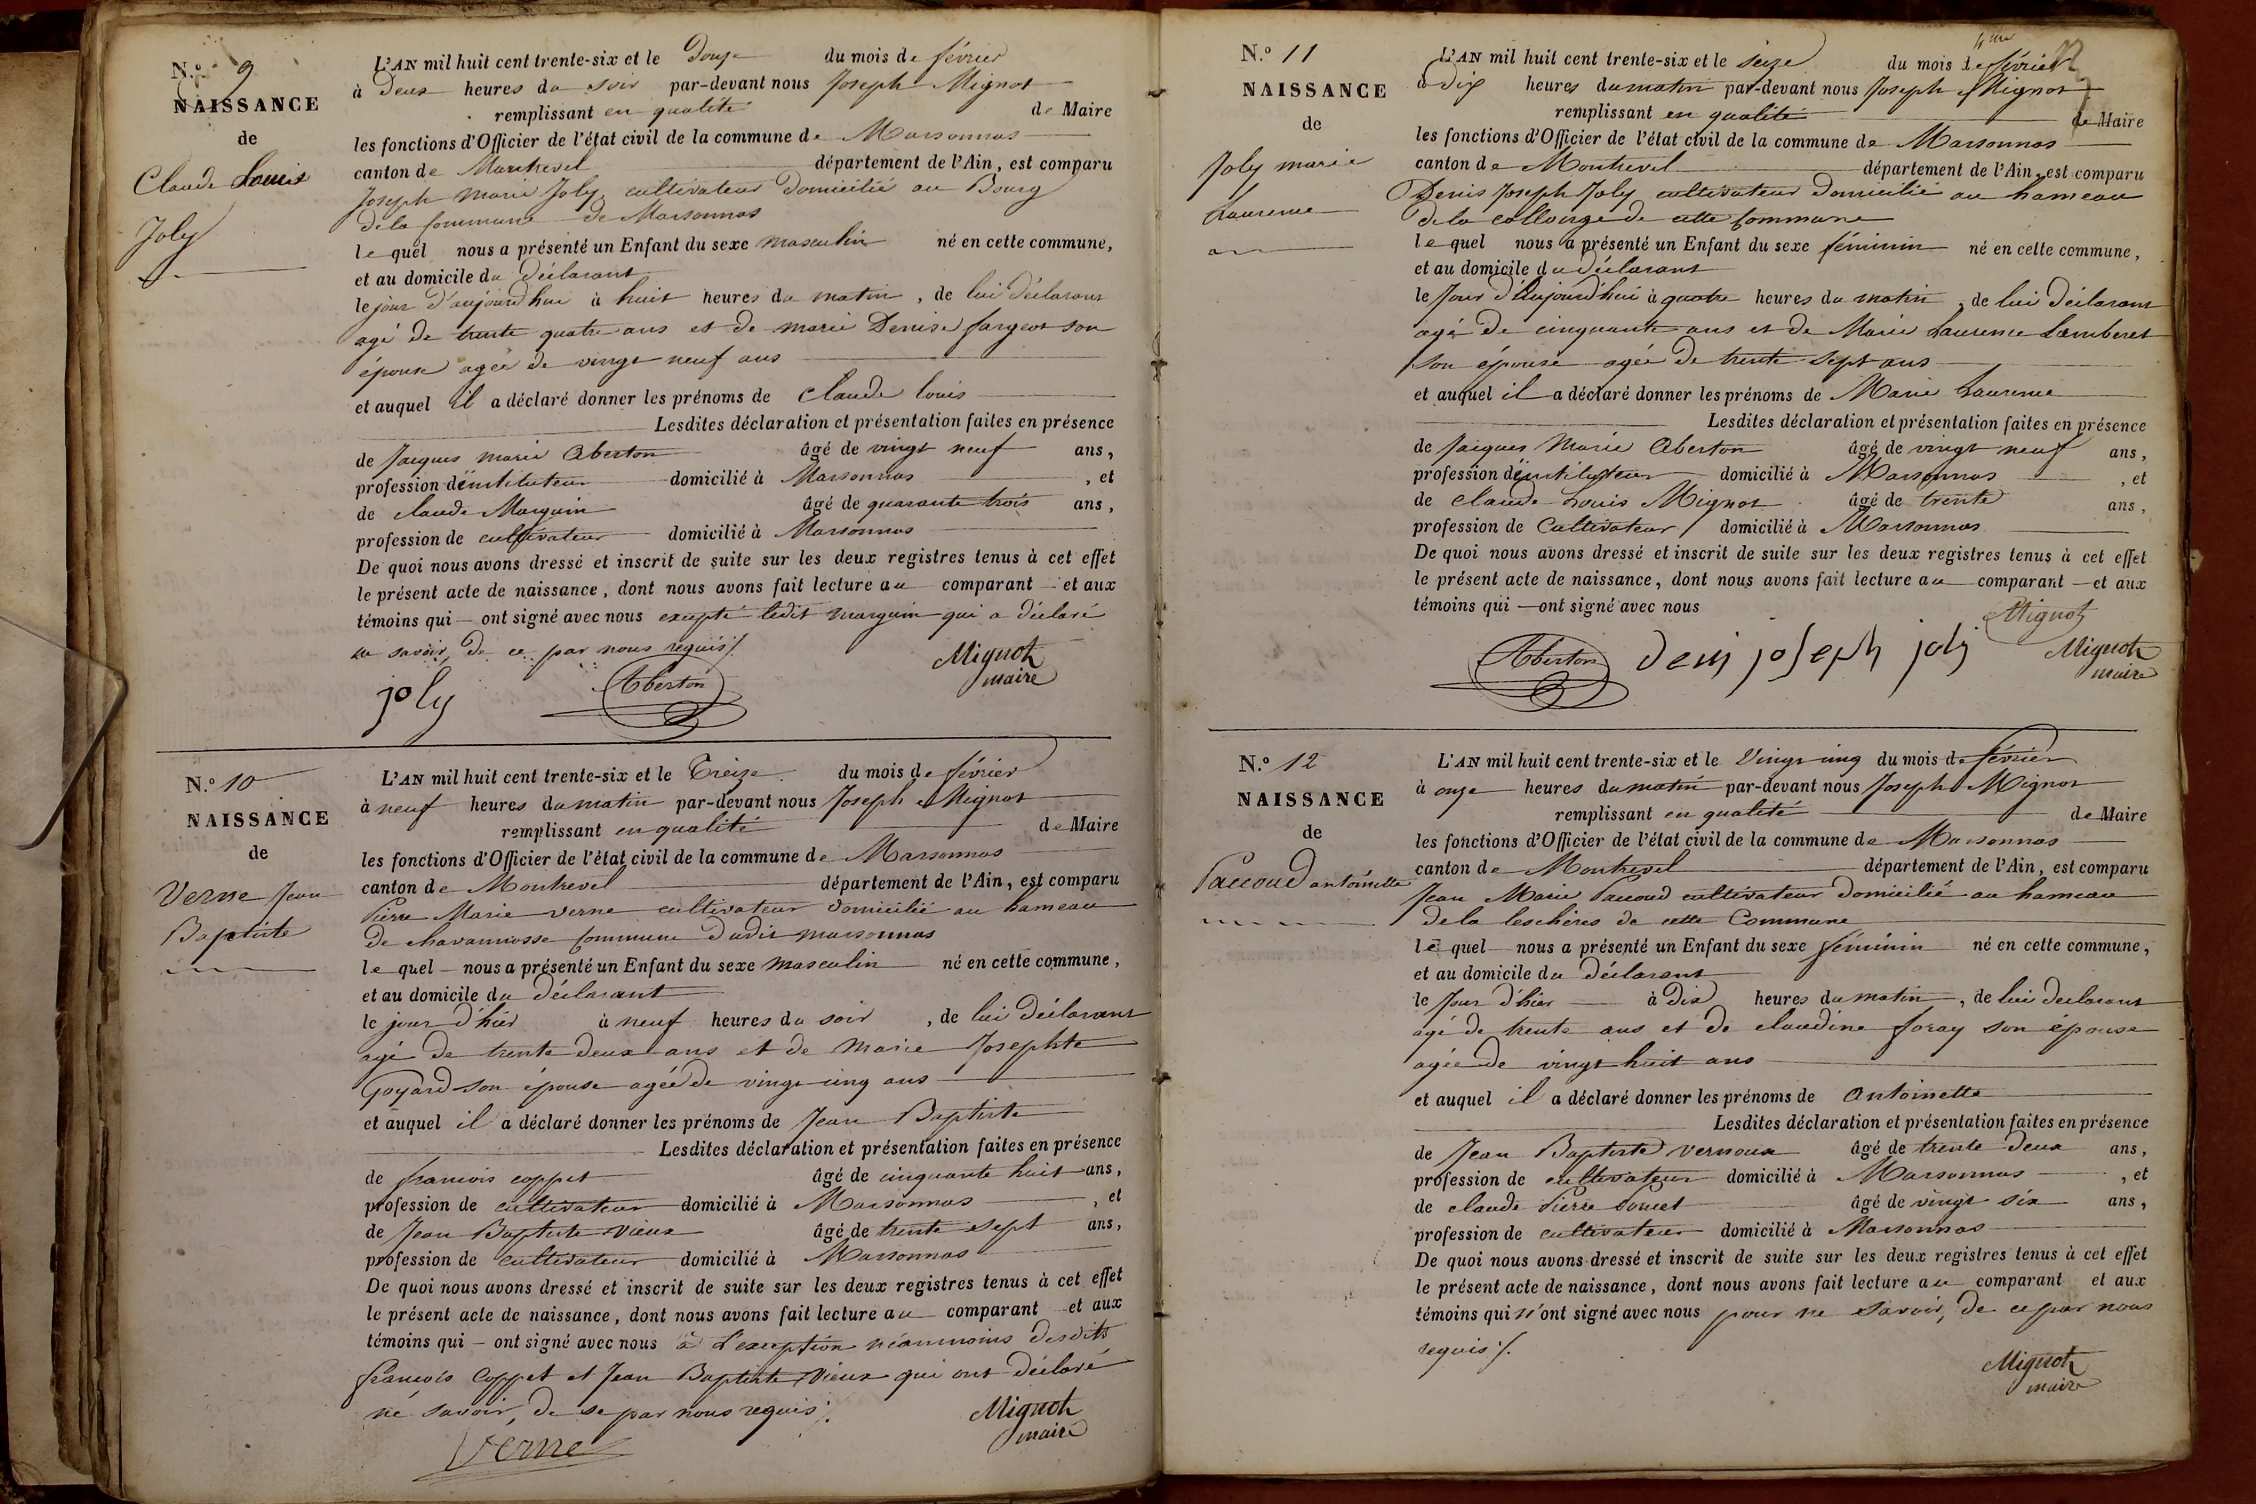 N.° 9
NAISSANCE
de
Claude Louis
Joly
L'AN mil huit cent trente-six et le Douze du mois de février
à Deux heures du soir par-devant nous Joseph Mignot
remplissant en qualité de Maire
les fonctions d'Officier de l'état civil de la commune de Marsonnas
canton de Montrevel département de l'Ain, est comparu
Joseph Marie Joly cultivateur domicilié au Bourg
de la Commune de Marsonnas
lequel nous a présenté un Enfant du sexe masculin né en cette commune,
et au domicile du déclarant
le jour d'aujourd'hui à huit heures du matin, de lui déclarant
agé de trente quatre ans et de marie Denise fargeot son
épouse agée de vingt neuf ans
et auquel il a déclaré donner les prénoms de Claude louis
Lesdites déclaration et présentation faites en présence
de Jacques marie Aberton âgé de vingt neuf ans,
profession d'instituteur domicilié à Marsonnas, et
de claude Marguin âgé de quarante trois ans,
profession de cultivateur domicilié à Marsonnas
De quoi nous avons dressé et inscrit de suite sur les deux registres tenus à cet effet
le présent acte de naissance, dont nous avons fait lecture au comparant et aux
témoins qui ont signé avec nous excepté ledit marguin qui a déclaré
ne savoir, de ce par nous requis
joly Aberton Mignot
maire
N.° 10
NAISSANCE
de
Verne Jean
Baptiste
L'AN mil huit cent trente-six et le Treize du mois de février
à neuf heures du matin par-devant nous Joseph Mignot
remplissant en qualité de Maire
les fonctions d'Officier de l'état civil de la commune de Marsonnas
canton de Montrevel département de l'Ain, est comparu
Pierre Marie Verne cultivateur domicilié au hameau
de chavannosse commune dudit marsonnas
lequel nous a présenté un Enfant du sexe masculin né en cette commune,
et au domicile du déclarant
le jour d'hier à neuf heures du soir, de lui déclarant
agé de trente deux ans et de Marie Josephte
Goyard son épouse agée de vingt cinq ans
et auquel il a déclaré donner les prénoms de Jean Baptiste
Lesdites déclaration et présentation faites en présence
de francois coppet âgé de cinquante huit ans,
profession de cultivateur domicilié à Marsonnas, et
de Jean Baptiste vieux âgé de trente sept ans,
profession de cultivateur domicilié à Marsonnas
De quoi nous avons dressé et inscrit de suite sur les deux registres tenus à cet effet
le présent acte de naissance, dont nous avons fait lecture au comparant et aux
témoins qui ont signé avec nous à l'exception néanmoins desdits
francois Coppet et Jean Baptiste vieux qui ont déclaré
né savoir, de se par nous requis
Verne Mignot
maire
N.° 11
NAISSANCE
de
Joly marie
Laurence
L'AN mil huit cent trente-six et le seize du mois de février
à dix heures du matin par-devant nous Joseph Mignot
remplissant en qualité de Maire
les fonctions d'Officier de l'état civil de la commune de Marsonnas
canton de Montrevel département de l'Ain, est comparu
Denis Joseph Joly cultivateur domicilié au hameau
de la collonge de cette Commune
lequel nous a présenté un Enfant du sexe féminin né en cette commune,
et au domicile du déclarant
le Jour d'Aujourd'hui à quatre heures du matin, de lui déclarant
agé de cinquante ans et de Marie Laurence Lamberet
son épouse agée de trente sept ans
et auquel il a déclaré donner les prénoms de Marie Laurence
Lesdites déclaration et présentation faites en présence
de Jacques Marie Aberton âgé de vingt neuf ans,
profession d'instituteur domicilié à Marsonnas, et
de claude Louis Mignot âgé de trente ans,
profession de Cultivateur domicilié à Marsonnas
De quoi nous avons dressé et inscrit de suite sur les deux registres tenus à cet effet
le présent acte de naissance, dont nous avons fait lecture au comparant et aux
témoins qui ont signé avec nous
Mignot
Aberton denis joseph joly Mignot
maire
N.° 12
NAISSANCE
de
Paccoud antoinette
L'AN mil huit cent trente-six et le Vingt cinq du mois de février
à onze heures du matin par-devant nous Joseph Mignot
remplissant en qualité de Maire
les fonctions d'Officier de l'état civil de la commune de Marsonnas
canton de Montrevel département de l'Ain, est comparu
Jean Marie Paccoud cultivateur domicilié au hameau
de la leschères de cette Commune
lequel nous a présenté un Enfant du sexe féminin né en cette commune,
et au domicile du déclarant
le Jour d'hier à dix heures du matin, de lui déclarant
agé de trente ans et de claudine foray son épouse
agée de vingt huit ans
et auquel il a déclaré donner les prénoms de Antoinette
Lesdites déclaration et présentation faites en présence
de Jean Baptiste vernoux âgé de trente deux ans,
profession de cultivateur domicilié à Marsonnas, et
de claude Pierre âgé de vingt six ans,
profession de cultivateur domicilié à Marsonnas
De quoi nous avons dressé et inscrit de suite sur les deux registres tenus à cet effet
le présent acte de naissance, dont nous avons fait lecture au comparant et aux
témoins qui n'ont signé avec nous pour ne savoir, de ce par nous
requis
Mignot
maire